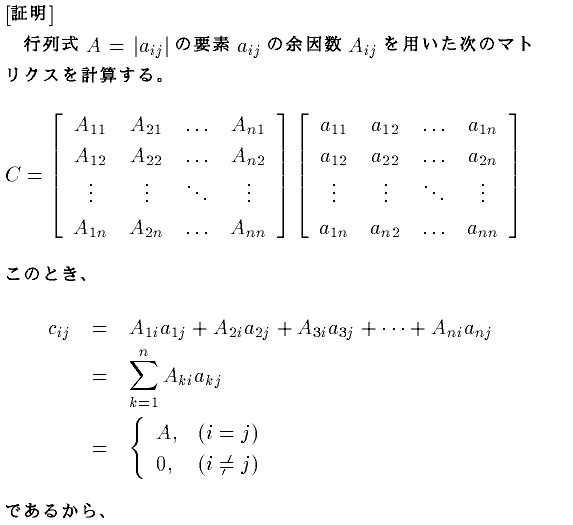 [証明]
行列式 A = |a_{ij}| の要素 a_{ij} の余因数 A_{ij} を用いた次のマト
リクスを計算する。
C = \begin{bmatrix} A_{11} & A_{21} & \dots & A_{n1} \\ A_{12} & A_{22} & \dots & A_{n2} \\ \vdots & \vdots & \ddots & \vdots \\ A_{1n} & A_{2n} & \dots & A_{nn} \end{bmatrix} \begin{bmatrix} a_{11} & a_{12} & \dots & a_{1n} \\ a_{12} & a_{22} & \dots & a_{2n} \\ \vdots & \vdots & \ddots & \vdots \\ a_{1n} & a_{n2} & \dots & a_{nn} \end{bmatrix}
このとき、
c_{ij} = A_{1i}a_{1j} + A_{2i}a_{2j} + A_{3i}a_{3j} + \cdots + A_{ni}a_{nj}
= \sum_{k=1}^{n} A_{ki}a_{kj}
= \begin{cases} A, & (i = j) \\ 0, & (i \neq j) \end{cases}
であるから、